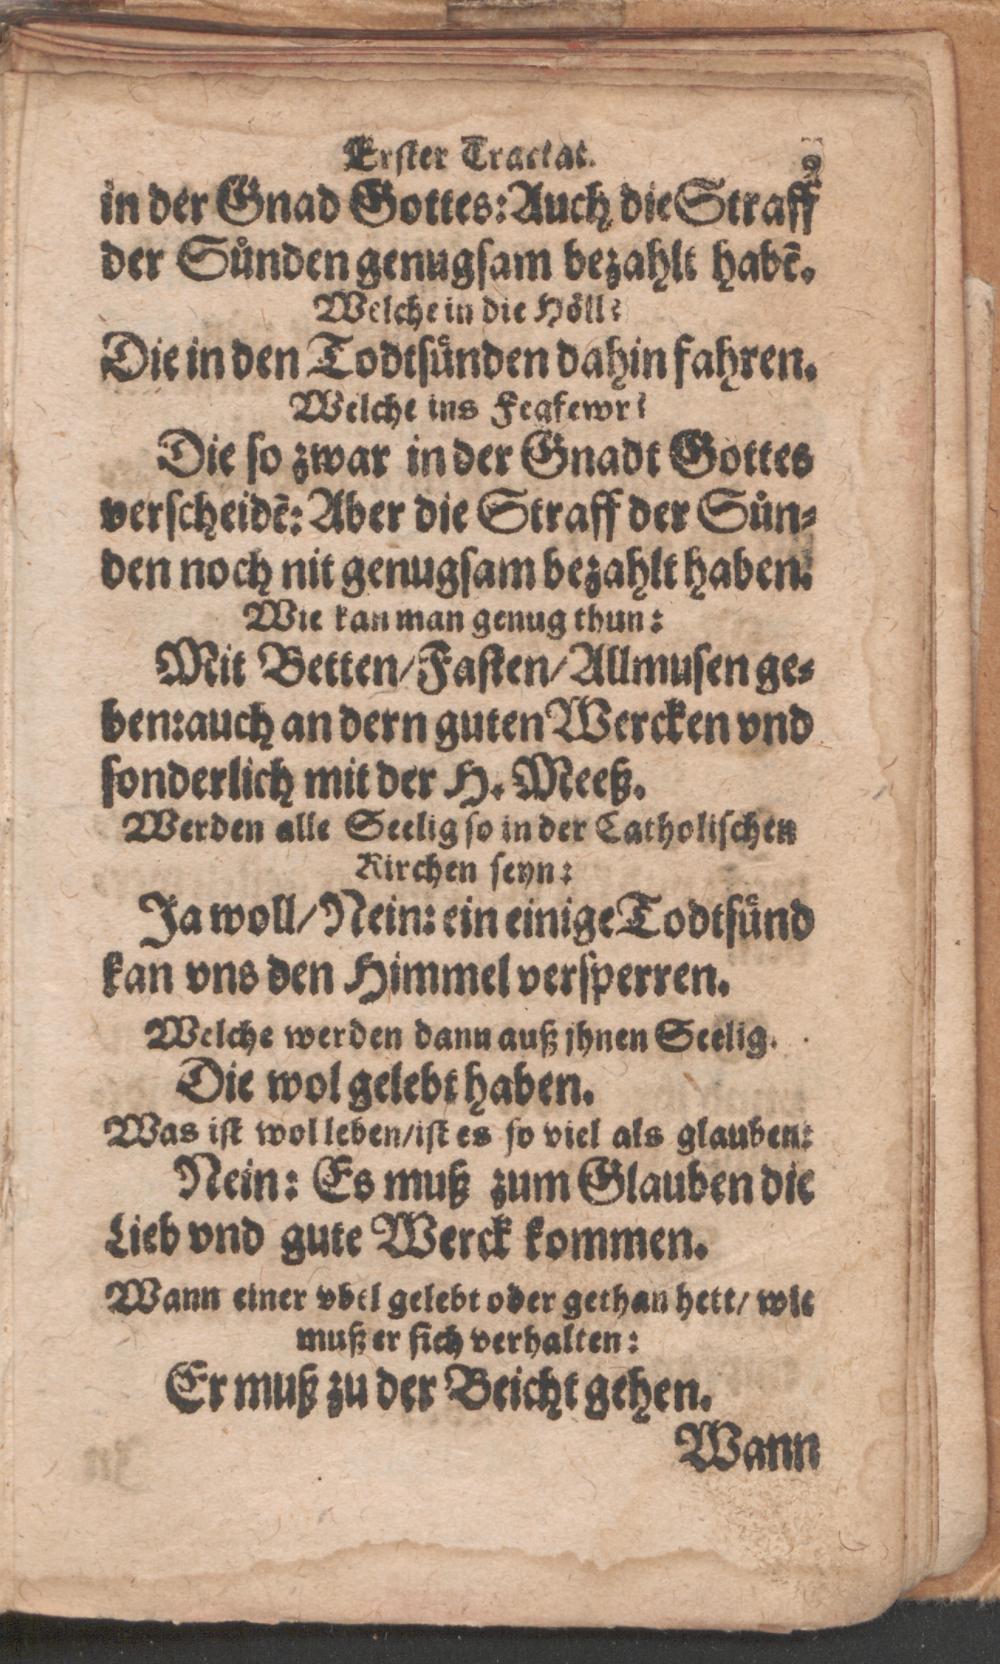 Erster Tractat. 2
in der Gnad Gottes: Auch die Straff
der Sůnden genugsam bezahlt habē.
Welche in die Höll?
Die in den Todtsůnden dahin fahren.
Welche ins Fegfewr?
Die so zwar in der Gnadt Gottes
verscheidē: Aber die Straff der Sůn⸗
den noch nit genugsam bezahlt haben.
Wie kan man genug thun:
Mit Betten/Fasten/Allmusen ge⸗
ben: auch an dern guten Wercken vnd
sonderlich mit der H. Meeß.
Werden alle Seelig so in der Catholischen
Kirchen seyn:
Ja woll/Nein: ein einige Todtsůnd
kan vns den Himmel versperren.
Welche werden dann auß jhnen Seelig.
Die wol gelebt haben.
Was ist wol leben/ist es so viel als glauben:
Nein: Es muß zum Glauben die
Lieb vnd gute Werck kommen.
Wann einer vbel gelebt oder gethan hett/ wie
muß er sich verhalten:
Er muß zu der Beicht gehen.
Wann